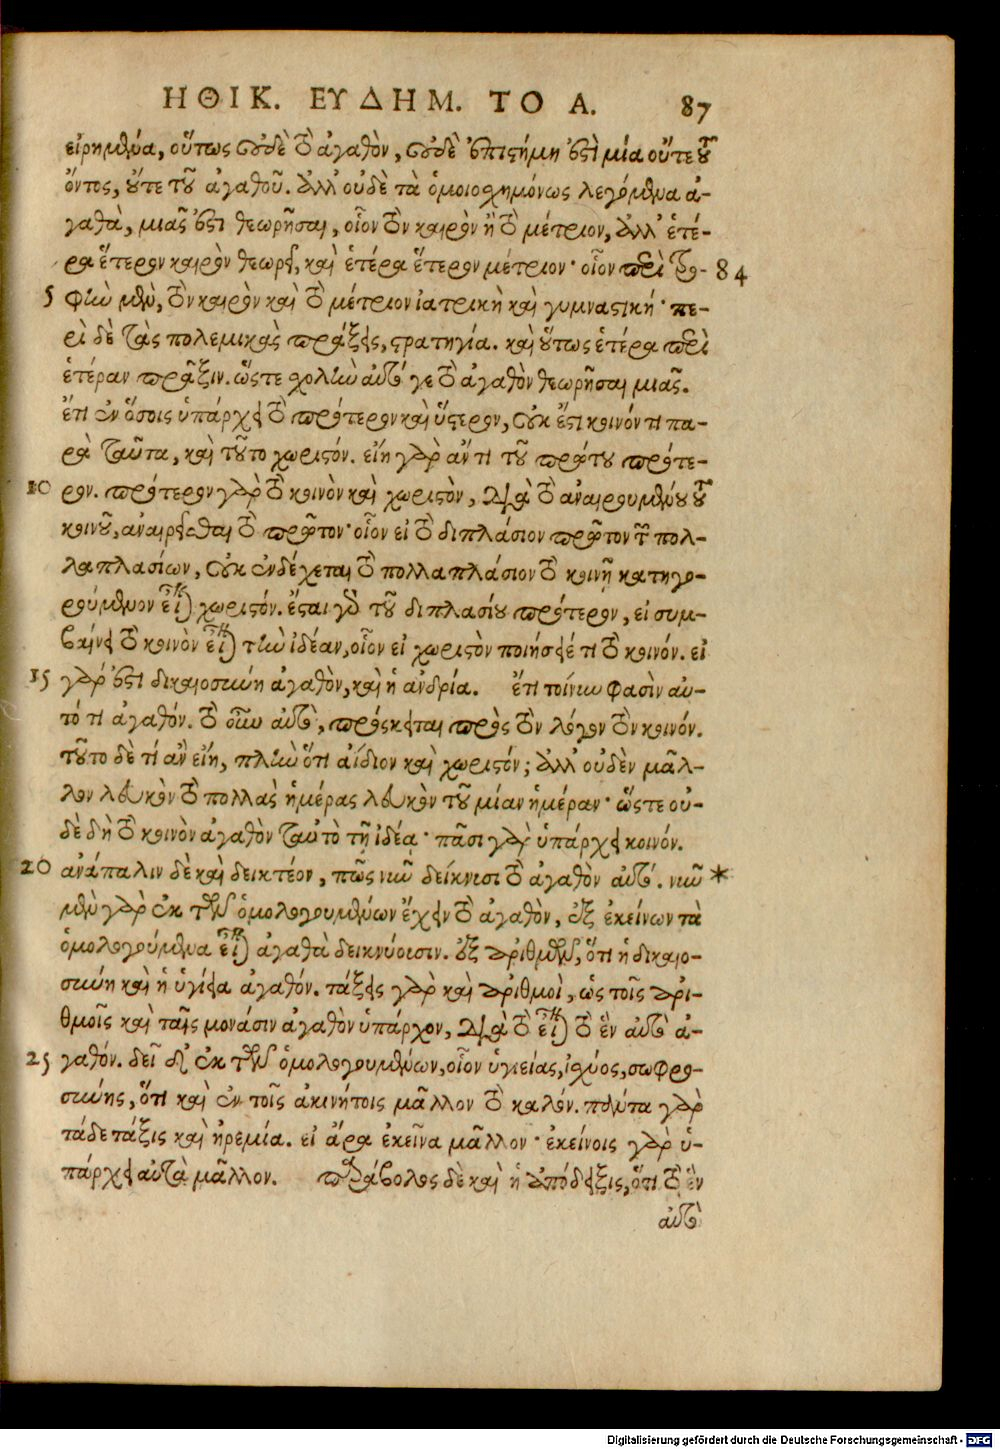 ΗΘΙΚ. ΕΥΔΗΜ. ΤΟ Α. 87
εἰρημένα, οὕτως οὐδὲ τὸ ἀγαθὸν, οὐδὲ ἐπιστήμη ἐστὶ μία οὔτε τοῦ
ὄντος, οὔτε τοῦ ἀγαθοῦ. ἀλλ' οὐδὲ τὰ ὁμοιοσχημόνως λεγόμενα ἀ-
γαθὰ, μιᾶς ἐστι θεωρῆσαι, οἷον τὸν καιρὸν ἢ τὸ μέτριον, ἀλλ' ἑτέ-
ρα ἕτερον καιρὸν θεωρεῖ, καὶ ἑτέρα ἕτερον μέτριον· οἷον περὶ τρο- 84
5 φὴν μὲν, τὸν καιρὸν καὶ τὸ μέτριον ἰατρικὴ καὶ γυμναστική· πε-
ρὶ δὲ τὰς πολεμικὰς πράξεις, στρατηγία. καὶ οὕτως ἑτέρα περὶ
ἑτέραν πρᾶξιν. ὥστε σχολὴν αὐτό γε τὸ ἀγαθὸν θεωρῆσαι μιᾶς.
ἔτι ἐν ὅσοις ὑπάρχει τὸ πρότερον καὶ ὕστερον, οὐκ ἔστι κοινόν τι πα-
ρὰ ταῦτα, καὶ τοῦτο χωριστόν. εἴη γὰρ ἄν τι τοῦ πρώτου πρότε-
10 ρον. πρότερον γὰρ τὸ κοινὸν καὶ χωριστὸν, διὰ τὸ ἀναιρουμένου τοῦ
κοινοῦ, ἀναιρεῖσθαι τὸ πρῶτον· οἷον εἰ τὸ διπλάσιον πρῶτον τῶν πολ-
λαπλασίων, οὐκ ἐνδέχεται τὸ πολλαπλάσιον τὸ κοινῇ κατηγο-
ρούμενον εἶναι χωριστόν. ἔσται γὰρ τοῦ διπλασίου πρότερον, εἰ συμ-
βαίνει τὸ κοινὸν εἶναι τὴν ἰδέαν, οἷον εἰ χωριστὸν ποιήσειέ τι τὸ κοινόν. εἰ
15 γάρ ἐστι δικαιοσύνη ἀγαθὸν, καὶ ἡ ἀνδρία. ἔτι τοίνυν φασὶν αὐ-
τό τι ἀγαθόν. τὸ οὖν αὐτὸ, πρόσκειται πρὸς τὸν λόγον τὸν κοινόν.
τοῦτο δὲ τί ἂν εἴη, πλὴν ὅτι ἀίδιον καὶ χωριστόν; ἀλλ' οὐδὲν μᾶλ-
λον λευκὸν τὸ πολλὰς ἡμέρας λευκὸν τοῦ μίαν ἡμέραν· ὥστε οὐ-
δὲ δὴ τὸ κοινὸν ἀγαθὸν ταὐτὸ τῇ ἰδέᾳ· πᾶσι γὰρ ὑπάρχει κοινόν.
20 ἀνάπαλιν δὲ καὶ δεικτέον, πῶς νῦν δείκνυσι τὸ ἀγαθὸν αὐτό. νῦν *
μὲν γὰρ ἐκ τῶν ὁμολογουμένων ἔχειν τὸ ἀγαθὸν, ἐξ ἐκείνων τὰ
ὁμολογούμενα εἶναι ἀγαθὰ δεικνύουσιν. ἐξ ἀριθμῶν, ὅτι ἡ δικαιο-
σύνη καὶ ἡ ὑγίεια ἀγαθόν. τάξεις γὰρ καὶ ἀριθμοὶ, ὡς τοῖς ἀρι-
θμοῖς καὶ ταῖς μονάσιν ἀγαθὸν ὑπάρχον, διὰ τὸ εἶναι τὸ ἓν αὐτὸ ἀ-
25 γαθόν. δεῖ δὲ ἐκ τῶν ὁμολογουμένων, οἷον ὑγιείας, ἰσχύος, σωφρο-
σύνης, ὅτι καὶ ἐν τοῖς ἀκινήτοις μᾶλλον τὸ καλόν. πάντα γὰρ
τάδε τάξις καὶ ἠρεμία. εἰ ἄρα ἐκεῖνα μᾶλλον· ἐκείνοις γὰρ ὑ-
πάρχει αὐτὰ μᾶλλον. παράβολος δὲ καὶ ἡ ἀπόδειξις, ὅτι τὸ ἓν
αὐτὸ
Digitalisierung gefördert durch die Deutsche Forschungsgemeinschaft - DFG